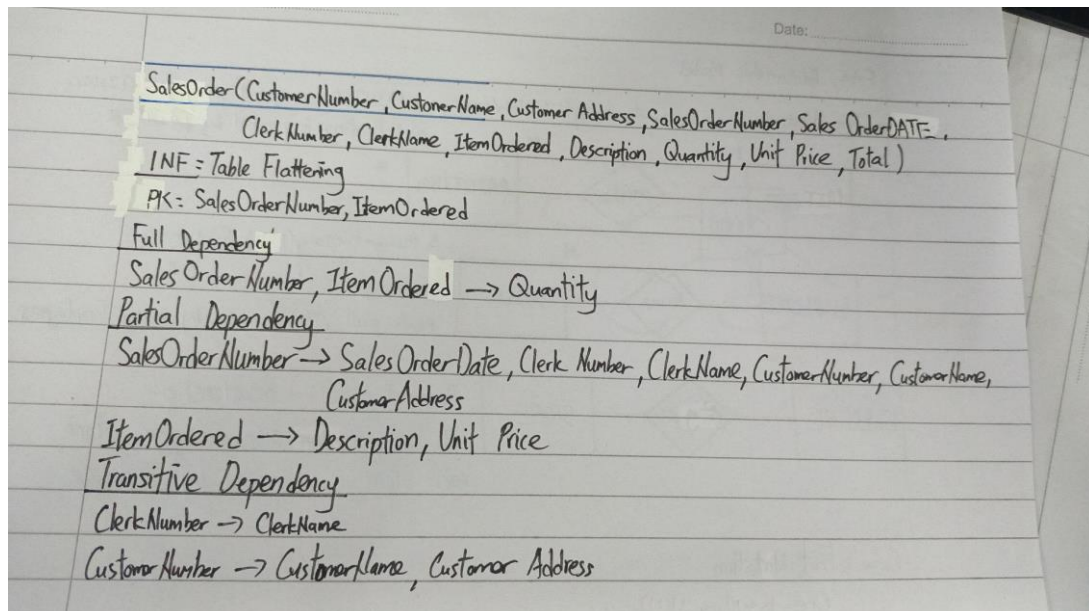 Date:
SalesOrder (CustomerNumber, CustonerName, Customer Address, SalesOrderNumber, Sales OrderDATE,
Clerk Number, ClerkName, ItemOrdered, Description, Quantity, Unit Price, Total)
1NF = Table Flattering
PK = SalesOrderNumber, ItemOrdered
Full Dependency
Sales Order Number, Item Ordered → Quantity
Partial Dependency
SalesOrderNumber → Sales OrderDate, Clerk Number, ClerkName, CustomerNumber, CustomerName,
CustomerAddress
ItemOrdered → Description, Unit Price
Transitive Dependency
ClerkNumber → ClerkName
CustomerNumber → CustomerName, Customer Address